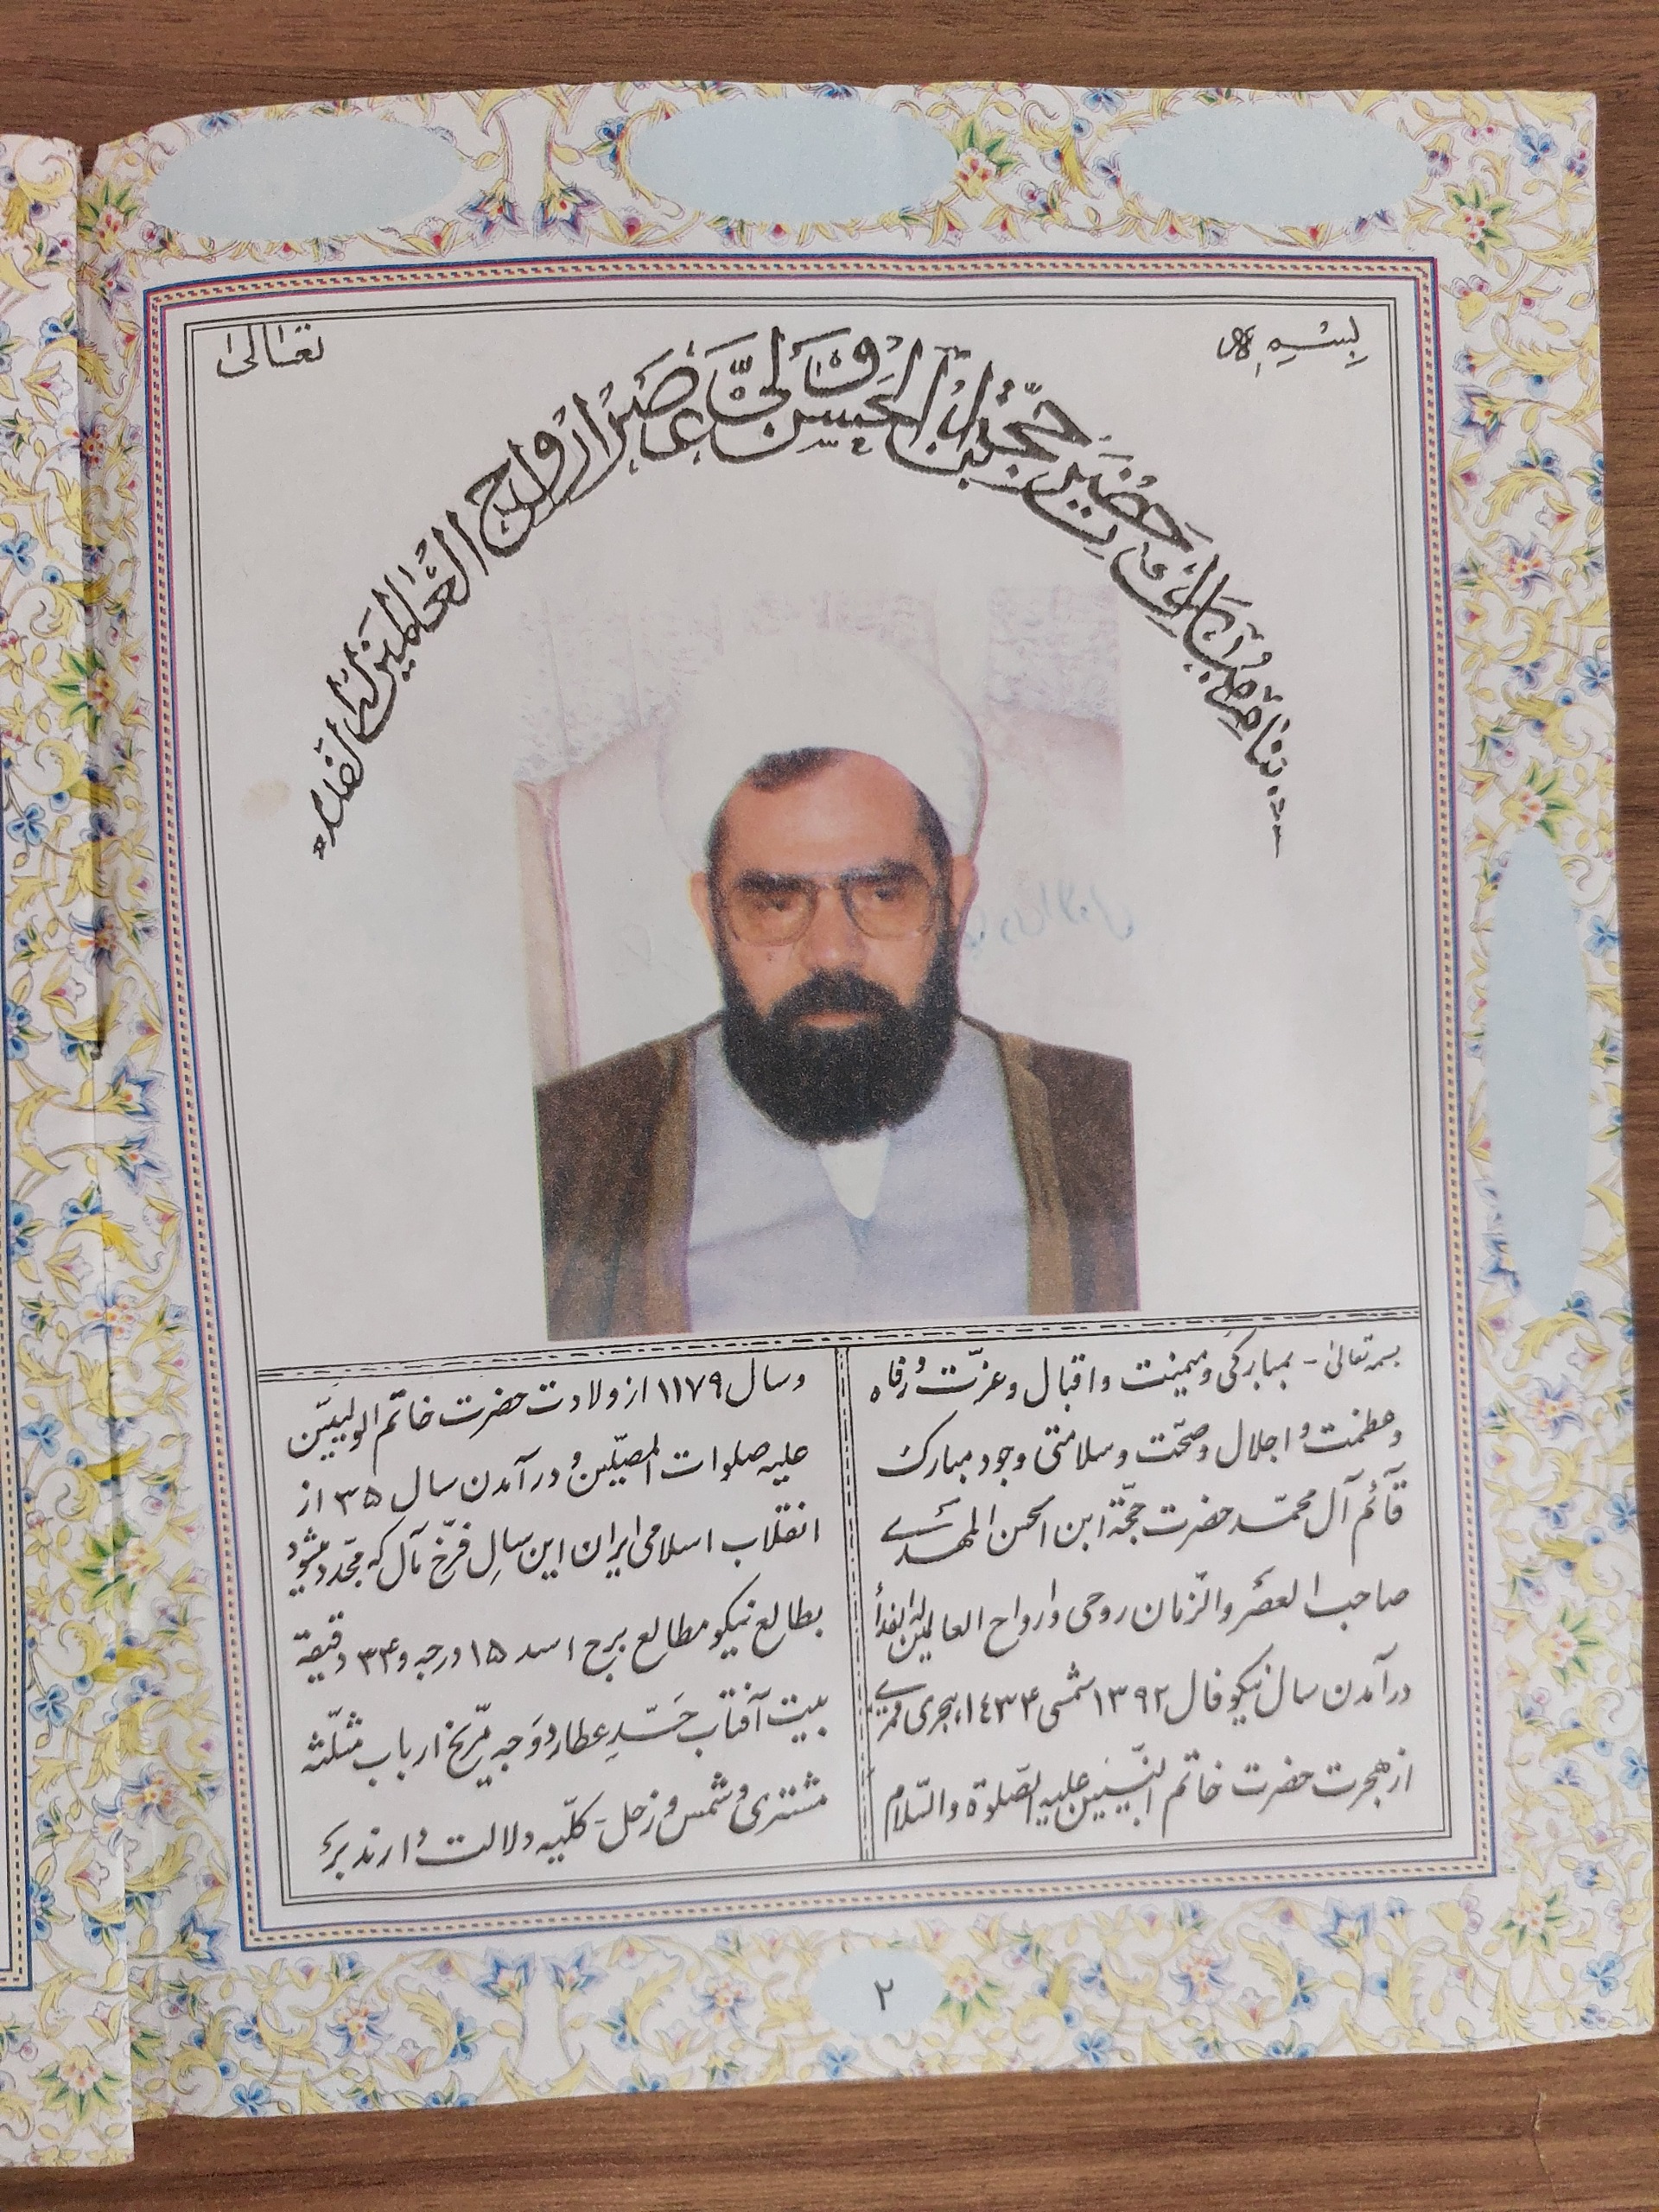 بسمه تعالی
بناحیه صاحب ولایت حضرت حجّة ابن الحسن ولیّ عصر ارواح العالمین له الفداء
بسمه تعالی - بمبارکی و میمنت و اقبال و عزّت و رفاه
و عظمت و اجلال و صحّت و سلامتی وجود مبارک
قآئم آل محمّد حضرت حجّة ابن الحسن المهدی
صاحب العصر والزّمان روحی و ارواح العالمین له الفدأ
درآمدن سال نیکو فال ۱۳۹۲ شمسی ۱۴۳۴ هجری قمری
از هجرت حضرت خاتم النّبیّین علیه الصّلوة والسّلام
و سال ۱۱۷۹ از ولادت حضرت خاتم الولییّن
علیه صلوات المصلّین و درآمدن سال ۳۵ از
انقلاب اسلامی ایران این سالِ فرّخ مآل که مجّدد میشود
بطالع نیکو مطالع برج اسد ۱۵ درجه و ۳۴ دقیقة
بیت آفتاب حَدّ عطارد وَجه مرّیخ ارباب مثلّثه
مشتری و شمس و زحل کلّیه دلالت دارند بر
۲